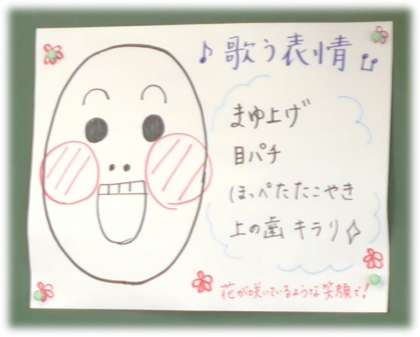 ♪歌う表情
まゆ上げ
目パチ
ほっぺたたこやき
上の歯キラリ
花が咲いているような笑顔で!